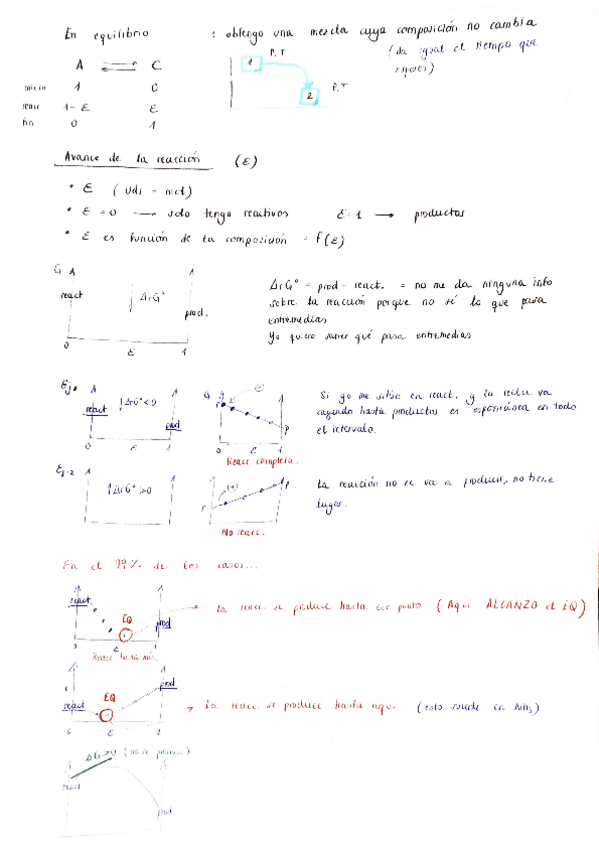 En equilibrio : obtengo una mezcla cuya composición no cambia
(da igual el tiempo que espere)
P, T
A ⇌ C
1
2
P, T
inicio 1 0
reacc 1-ε ε
fin 0 1
Avance de la reacción (ε)
• ε (Uds - mol)
• ε = 0 → solo tengo reactivos ε = 1 → productos
• ε es función de la composición = f(ε)
G
react
ΔrG°
prod.
0 ε 1
ΔrG° = prod - react. = no me da ninguna info
sobre la reacción porque no sé lo que pasa
entremedias
Yo quiero saber qué pasa entremedias
Ej. 1
react
ΔrG°<0
prod
0 ε 1
G
R
(-)
P
0 ε 1
Reacc completa.
Si yo me sitúo en react. y la recta va
cayendo hasta productos es espontánea en todo
el intervalo.
Ej. 2
ΔrG°>0
(+)
P
No reacc.
La reacción no se va a producir, no tiene
lugar.
En el 99% de los casos...
react
EQ
prod
ε
→ La reacc. se produce hasta ese punto (Aquí ALCANZO el EQ)
prod
react
EQ
ε
→ La reacc. se produce hasta aquí. (esto sucede en NH₃)
ΔG>0 (no se produce)
react
prod